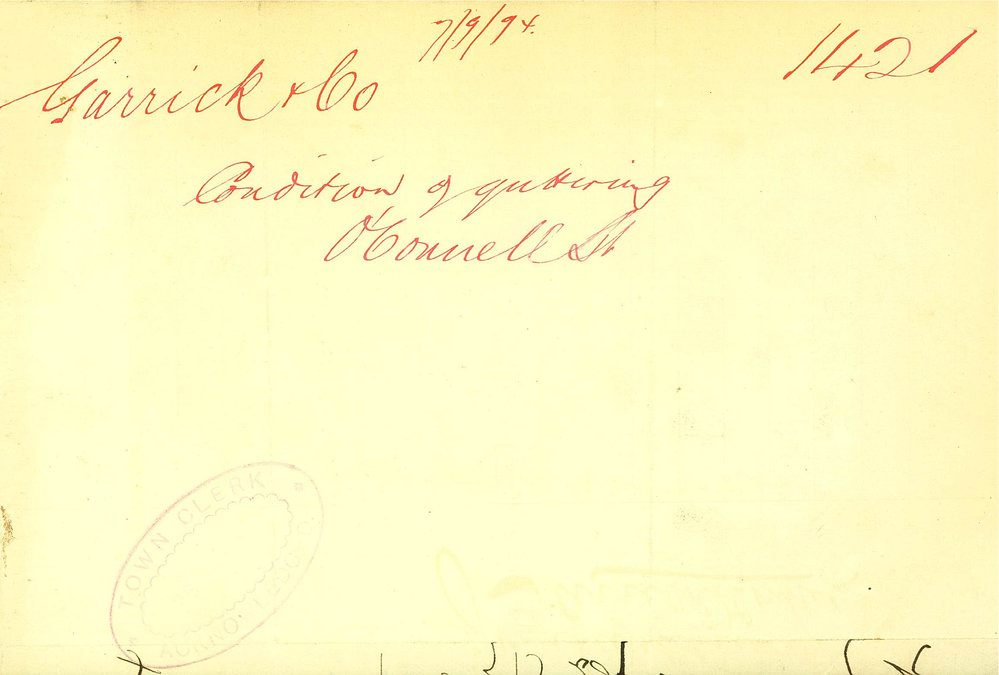 7/9/94.
1421
Garrick & Co
Condition of guttering
O'Connell St
TOWN CLERK